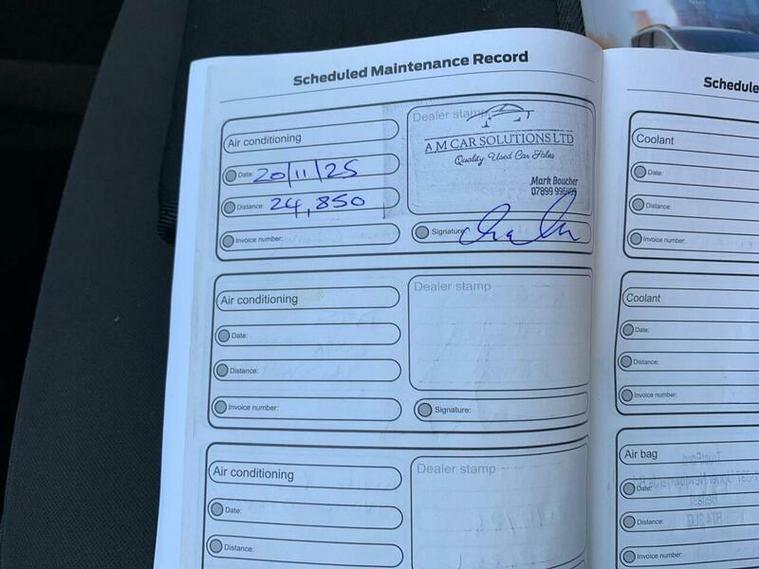 Scheduled Maintenance Record
Air conditioning
Date: 20/11/25
Distance: 24,850
Invoice number:
Dealer stamp
A M CAR SOLUTIONS LTD
Quality Used Car Sales
Mark Boucher
07899
Signature:
Air conditioning
Date:
Distance:
Invoice number:
Dealer stamp
Signature:
Air conditioning
Date:
Distance:
Dealer stamp
Schedule
Coolant
Date:
Distance:
Invoice number:
Coolant
Date:
Distance:
Invoice number:
Air bag
Date:
Distance:
Invoice number: